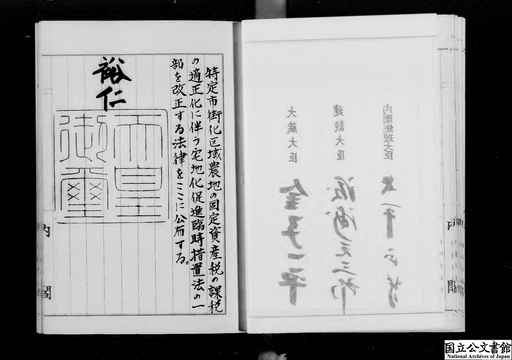 特定市街化区域農地の固定資産税の課税
の適正化に伴う宅地化促進臨時措置法の一
部を改正する法律をここに公布する。
裕仁
天皇
御璽
内閣
内閣総理大臣
建設大臣
大蔵大臣
国立公文書館
National Archives of Japan